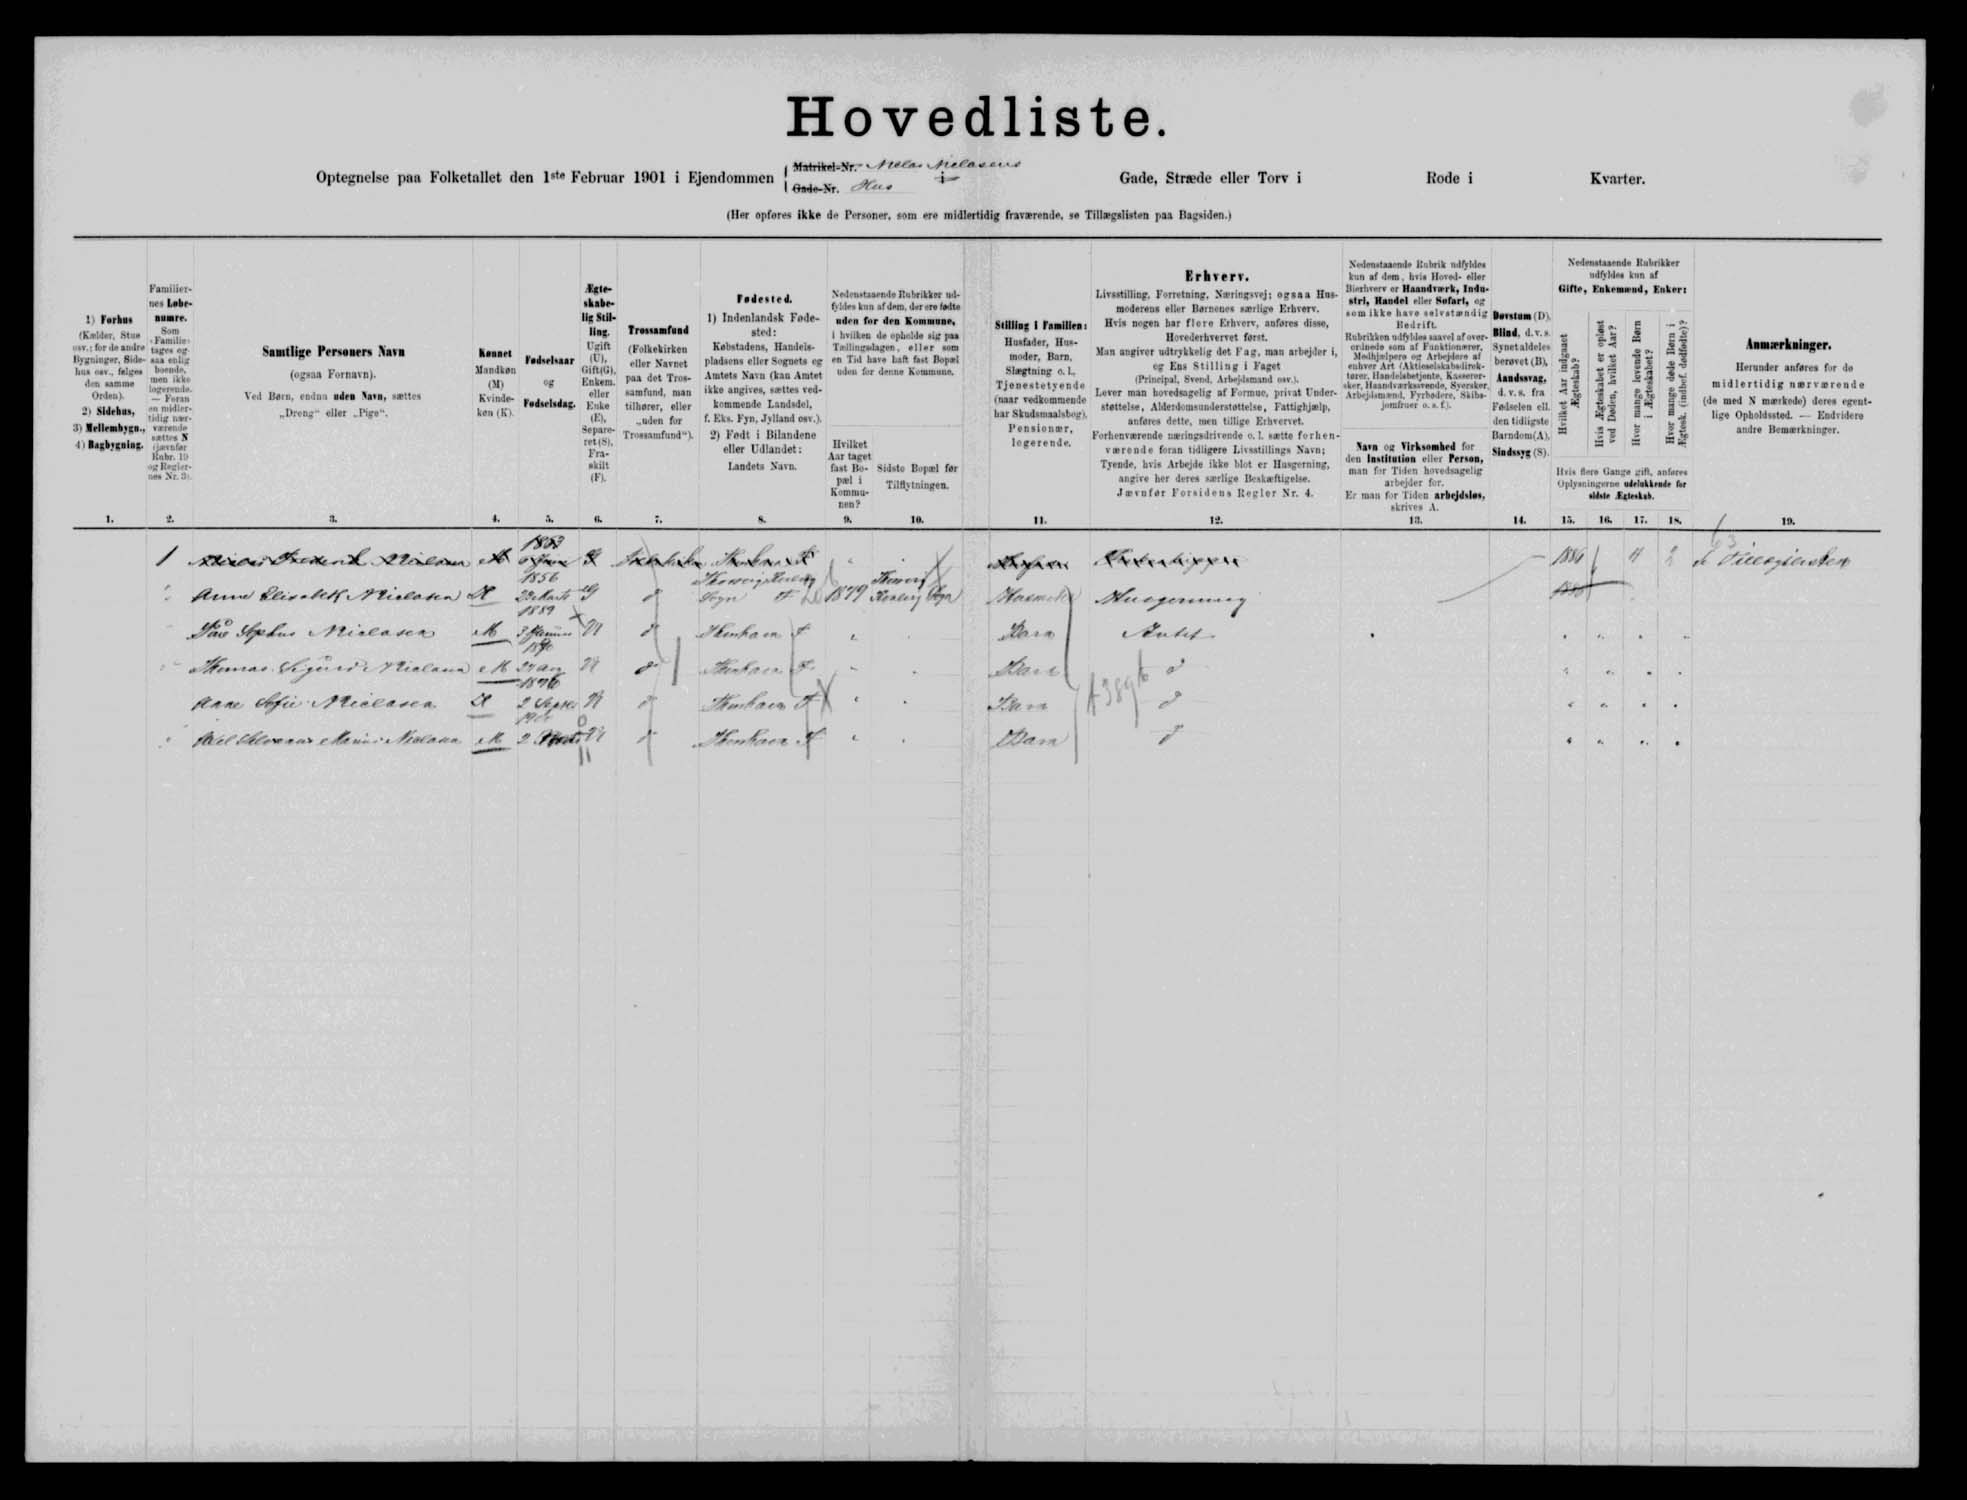 Hovedliste.
Optegnelse paa Folketallet den 1ste Februar 1901 i Ejendommen
Matrikel-Nr. Niels Nielsens
Gade-Nr. Hus
i
Gade, Stræde eller Torv i Rode i Kvarter.
(Her opføres ikke de Personer, som ere midlertidig fraværende, se Tillægslisten paa Bagsiden.)
1) Forhus
(Kælder, Stue
osv.; for de andre
Bygninger, Side-
hus osv., følges
den samme
Orden).
2) Sidehus,
3) Mellembygn.,
4) Bagbygning.
Familier-
nes Løbe-
numre.
Som
Familie
tages og-
saa enlig
boende,
men ikke
logerende.
— Foran
en midler-
tidig nær-
værende
sættes N
(jævnfør
Rubr. 19
og Regler-
nes Nr. 3).
Samtlige Personers Navn
(ogsaa Fornavn).
Ved Børn, endnu uden Navn, sættes
„Dreng“ eller „Pige“.
Kønnet
Mandkøn
(M)
Kvinde-
køn (K).
Fødselsaar
og
Fødselsdag.
Ægte-
skabe-
lig Stil-
ling.
Ugift
(U),
Gift(G),
Enkem.
eller
Enke
(E),
Separe-
ret (S),
Fra-
skilt
(F).
Trossamfund
(Folkekirken
eller Navnet
paa det Tros-
samfund, man
tilhører, eller
„uden for
Trossamfund“).
Fødested.
1) Indenlandsk Føde-
sted:
Købstadens, Handels-
pladsens eller Sognets og
Amtets Navn (kan Amtet
ikke angives, sættes ved-
kommende Landsdel,
f. Eks. Fyn, Jylland osv.).
2) Født i Bilandene
eller Udlandet:
Landets Navn.
Nedenstaaende Rubrikker ud-
fyldes kun af dem, der ere fødte
uden for den Kommune,
i hvilken de opholde sig paa
Tællingsdagen, eller som
en Tid have haft fast Bopæl
uden for denne Kommune.
Hvilket
Aar taget
fast Bo-
pæl i
Kommu-
nen?
Sidste Bopæl før
Tilflytningen.
Stilling i Familien:
Husfader, Hus-
moder, Barn,
Slægtning o. l.,
Tjenestetyende
(naar vedkommende
har Skudsmaalsbog),
Pensionær,
logerende.
Erhverv.
Livsstilling, Forretning, Næringsvej; ogsaa Hus-
moderens eller Børnenes særlige Erhverv.
Hvis nogen har flere Erhverv, anføres disse,
Hovederhvervet først.
Man angiver udtrykkelig det Fag, man arbejder i,
og Ens Stilling i Faget
(Principal, Svend, Arbejdsmand osv.).
Lever man hovedsagelig af Formue, privat Under-
støttelse, Alderdomsunderstøttelse, Fattighjælp,
anføres dette, men tillige Erhvervet.
Forhenværende næringsdrivende o. l. sætte forhen-
værende foran tidligere Livsstillings Navn;
Tyende, hvis Arbejde ikke blot er Husgerning,
angive her deres særlige Beskæftigelse.
Jævnfør Forsidens Regler Nr. 4.
Nedenstaaende Rubrik udfyldes
kun af dem, hvis Hoved- eller
Bierhverv er Haandværk, Indu-
stri, Handel eller Søfart, og
som ikke have selvstændig
Bedrift.
Rubrikken udfyldes saavel af over-
ordnede som af Funktionærer,
Medhjælpere og Arbejdere af
enhver Art (Aktieselskabsdirek-
tører, Handelsbetjente, Kasserer-
sker, Haandværkssvende, Syersker,
Arbejdsmænd, Fyrbødere, Skibs-
jomfruer o. s. f.).
Navn og Virksomhed for
den Institution eller Person,
man for Tiden hovedsagelig
arbejder for.
Er man for Tiden arbejdsløs,
skrives A.
Døvstum (D),
Blind, d. v. s.
Synet aldeles
berøvet (B),
Aandssvag,
d. v. s. fra
Fødselen ell.
den tidligste
Barndom (A),
Sindssyg (S).
Nedenstaaende Rubrikker
udfyldes kun af
Gifte, Enkemænd, Enker:
Hvilket Aar indgaaet
Ægteskab?
Hvis Ægteskabet er opløst
ved Døden, hvilket Aar?
Hvor mange levende Børn
i Ægteskabet?
Hvor mange døde Børn i
Ægtesk. (indbef. dødfødte)?
Hvis flere Gange gift, anføres
Oplysningerne udelukkende for
sidste Ægteskab.
Anmærkninger.
Herunder anføres for de
midlertidig nærværende
(de med N mærkede) deres egent-
lige Opholdssted. — Endvidere
andre Bemærkninger.
1. 2. 3. 4. 5. 6. 7. 8. 9. 10. 11. 12. 13. 14. 15. 16. 17. 18. 19.
1 Frederik Nielsen M 1886 4 2 Tillægslisten
Anne Elisabeth Nielsen K 1856 G d Sogn F 1879 Sogn Husmoder Husgerning
Sophus Nielsen M 1889 U d F Barn Intet
Thomas Sigurd Nielsen M 1890 U d F Barn d
Anne Sofie Nielsen K 2 Septbr U d F Barn d
Nielsen M 2 U d F Barn d